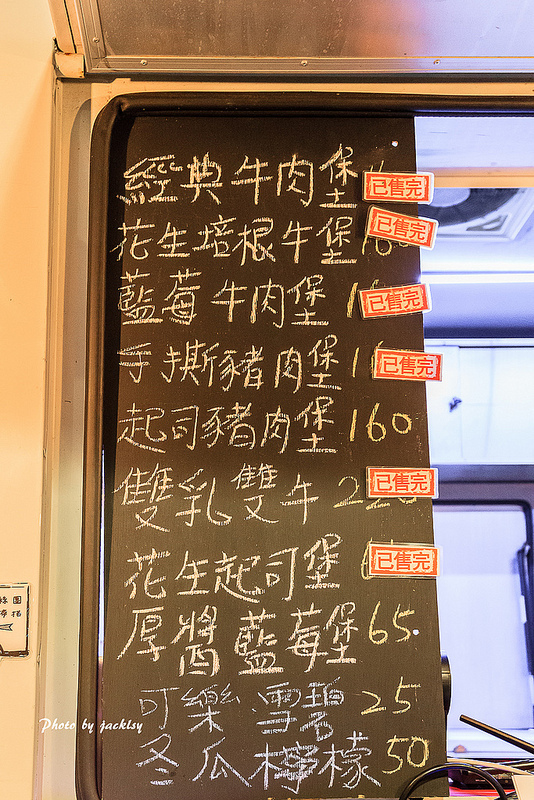 經典牛肉堡 已售完
花生培根牛堡 已售完
藍莓牛肉堡 已售完
手撕豬肉堡 已售完
起司豬肉堡 160
雙乳雙牛 已售完
花生起司堡 已售完
厚醬藍莓堡 65
可樂 雪碧 25
冬瓜檸檬 50
Photo by jacklsy